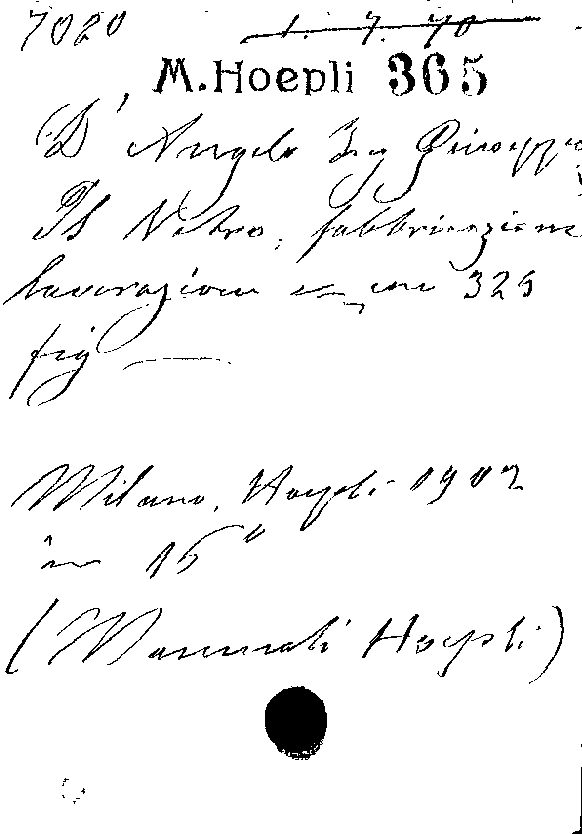 7020 1. 7. 70
M. Hoepli 365
D'Angelo Ing Giuseppe
Il Vetro, fabbricazione
lavorazione ecc, con 325
fig —
Milano, Hoepli 1902
in 16°
(Manuali Hoepli)